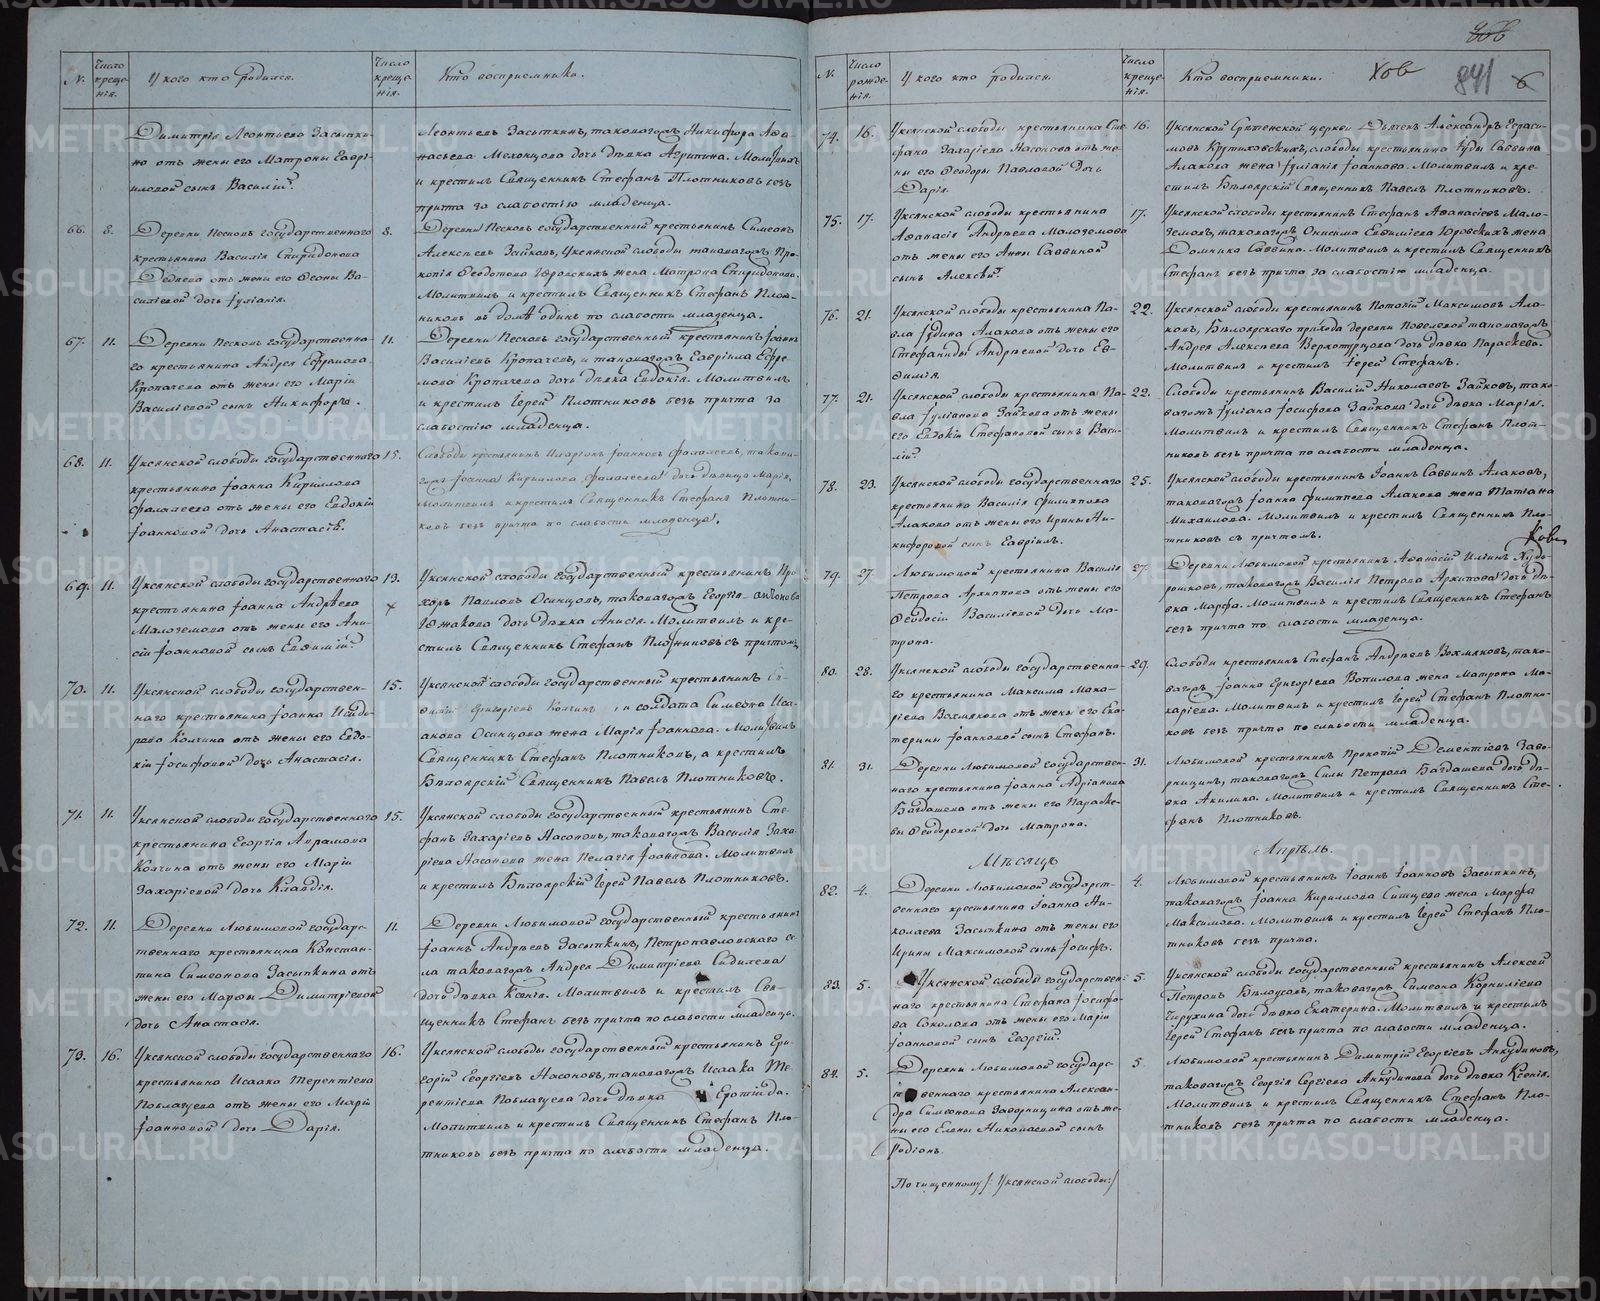 N. Число крещения. У кого кто родился. Число крещения. Кто восприемники.
Димитрія Леонтьева Засыпки-
на отъ жены его Матроны Гаврі-
иловой сынъ Василій.
Леонтьевъ Засыпкинъ, таковагожъ Никифора Афа-
насьева Мехонцова дочь дѣвка Агрипина. Молитвилъ
и крестилъ Священникъ Стефанъ Плотниковъ безъ
причта за слабостію младенца.
66. 8. Деревни Песковъ государственнаго 8.
крестьянина Василія Спиридонова
отъ жены его Феоны Ва-
силіевой дочь Іуліанія.
Деревни Песковъ государственный крестьянинъ Симеонъ
Алексѣевъ Зайковъ, Уксянской слободы таковагожъ Про-
копія Феодотова жена Матрона Спиридонова.
Молитвилъ и крестилъ Священникъ Стефанъ Плот-
никовъ въ домѣ одинъ по слабости младенца.
67. 11. Деревни Песковъ государственна- 11.
го крестьянина Андрея Ефремова
Кропачева отъ жены его Маріи
Василіевой сынъ Никифоръ.
Деревни Песковъ государственный крестьянинъ Іоаннъ
Василіевъ Кропачевъ, и таковагожъ Гавріила Ефре-
мова Кропачева дочь дѣвка Евдокія. Молитвилъ
и крестилъ Іерей Плотниковъ безъ причта за
слабостію младенца.
68. 11. Уксянской слободы государственнаго 15.
крестьянина Іоанна Кириллова
Фалалеева отъ жены его Евдокіи
Іоанновой дочь Анастасія.
Слободы крестьянинъ Иларіонъ Іоанновъ Фалалеевъ, такова-
гожъ Іоанна Кириллова Фалалеева дочь дѣвица Марія,
Молитвилъ и крестилъ Священникъ Стефанъ Плотни-
ковъ безъ причта по слабости младенца.
69. 11. Уксянской слободы государственнаго 13.
крестьянина Іоанна Андрѣева
Малоземова отъ жены его Ани-
сіи Іоанновой сынъ Евфимій.
Уксянской слободы государственный крестьянинъ Про-
хоръ Павловъ Осинцовъ, таковагожъ Георгія
Южакова дочь дѣвка Анисія. Молитвилъ и кре-
стилъ Священникъ Стефанъ Плотниковъ съ причтомъ.
70. 11. Уксянской слободы государствен- 15.
наго крестьянина Іоанна Исидо-
рова Колчина отъ жены его Евдо-
кіи Іосифовой дочь Анастасія.
Уксянской слободы государственный крестьянинъ
Григоріевъ Колчинъ, и солдата Симеона Иса-
акова Осинцова жена Марія Іоаннова. Молитвилъ
Священникъ Стефанъ Плотниковъ, а крестилъ
Бѣлоярскій Священникъ Павелъ Плотниковъ.
71. 11. Уксянской слободы государственнаго 15.
крестьянина Георгія Аврамова
Колчина отъ жены его Маріи
Захаріевой дочь Клавдія.
Уксянской слободы государственный крестьянинъ Сте-
фанъ Захаріевъ Насоновъ, таковагожъ Василія Заха-
ріева Насонова жена Пелагія Іоаннова. Молитвилъ
и крестилъ Бѣлоярскій Іерей Павелъ Плотниковъ.
72. 11. Деревни Любимовой государс- 11.
твеннаго крестьянина Констан-
тина Симеонова Засыпкина отъ
жены его Марфы Димитріевой
дочь Анастасія.
Деревни Любимовой государственный крестьянинъ
Іоаннъ Андрѣевъ Засыпкинъ, Петропавловскаго се-
ла таковагожъ Андрея Димитріева Сивилева
дочь дѣвка Ксенія. Молитвилъ и крестилъ Свя-
щенникъ Стефанъ безъ причта по слабости младенца.
73. 16. Уксянской слободы государственнаго 16.
крестьянина Исаака Терентіева
Поблагуева отъ жены его Маріи
Іоанновой дочь Дарія.
Уксянской слободы государственный крестьянинъ Гри-
горій Георгіевъ Насоновъ, таковагожъ Исаака Те-
рентіева Поблагуева дочь дѣвка Еротіида.
Молитвилъ и крестилъ Священникъ Стефанъ Пло-
тниковъ безъ причта по слабости младенца.
N. Число рожденія. У кого кто родился. Число крещенія. Кто восприемники. 841 6
74. 16. Уксянской слободы крестьянина Сте- 16.
фана Захаріева Насонова отъ же-
ны его Феодоры Павловой дочь
Дарія.
Уксянской Срѣтенской церкви Дьячекъ Александръ Гераси-
мовъ Крутиховскихъ, слободы крестьянина Іуды Саввина
Алакова жена Іуліанія Іоаннова. Молитвилъ и кре-
стилъ Бѣлоярскій Священникъ Павелъ Плотниковъ.
75. 17. Уксянской слободы крестьянина 17.
Афанасія Андрѣева Малоземова
отъ жены его Анны Саввиной
сынъ Алексѣй.
Уксянской слободы крестьянинъ Стефанъ Афанасіевъ Мало-
земовъ, таковагожъ Онисима Евфиміева Юровскихъ жена
Домника Саввина. Молитвилъ и крестилъ Священникъ
Стефанъ безъ причта за слабостію младенца.
76. 21. Уксянской слободы крестьянина Па- 22.
вла Іудина Алакова отъ жены его
Стефаниды Андрѣевой дочь Ев-
фимія.
Уксянской слободы крестьянинъ Потапій Максимовъ Ала-
ковъ, Бѣлоярскаго прихода деревни Повелевой таковагожъ
Андрея Алексѣева Верхотурцова дочь дѣвка Параскева.
Молитвилъ и крестилъ Іерей Стефанъ.
77. 21. Уксянской слободы крестьянина Па- 22.
вла Іуліанова Зайкова отъ жены
его Евдокіи Стефановой сынъ Васи-
лій.
Слободы крестьянинъ Василій Николаевъ Зайковъ, тако-
вагожъ Іуліана Іосифова Зайкова дочь дѣвка Марія.
Молитвилъ и крестилъ Священникъ Стефанъ Плот-
никовъ безъ причта по слабости младенца.
78. 23. Уксянской слободы государственнаго 25.
крестьянина Василія Филиппова
Алакова отъ жены его Ирины Ни-
кифоровой сынъ Гавріилъ.
Уксянской слободы крестьянинъ Іоаннъ Саввинъ Алаковъ,
таковагожъ Іоанна Филиппова Алакова жена Татіана
Михаилова. Молитвилъ и крестилъ Священникъ Пло-
тниковъ съ причтомъ.
79. 27. Любимовой крестьянина Василія 27.
Петрова Архипова отъ жены его
Феодосіи Василіевой дочь Ма-
трона.
Деревни Любимовой крестьянинъ Афанасій Илiинъ Худо-
рошковъ, таковагожъ Василія Петрова Архипова дочь дѣ-
вка Марфа. Молитвилъ и крестилъ Священникъ Стефанъ
безъ причта по слабости младенца.
80. 28. Уксянской слободы государственна- 29.
го крестьянина Максима Мака-
ріева Вохмякова отъ жены его Ека-
терины Іоанновой сынъ Стефанъ.
Слободы крестьянинъ Стефанъ Андрѣевъ Вохмяковъ, тако-
вагожъ Іоанна Григоріева Вопилова жена Матрона Ма-
каріева. Молитвилъ и крестилъ Іерей Стефанъ Плотни-
ковъ безъ причта по слабости младенца.
81. 31. Деревни Любимовой государствен- 31.
наго крестьянина Іоанна Адріанова
Багдашева отъ жены его Параске-
вы Феодоровой дочь Матрона.
Любимовой крестьянинъ Прокопій Дементіевъ Заво-
рницинъ, таковагожъ Силы Петрова Багдашева дочь дѣ-
вка Акилина. Молитвилъ и крестилъ Священникъ Сте-
фанъ Плотниковъ.
Мѣсяцъ Апрѣль.
82. 4. Деревни Любимовой государст- 4.
веннаго крестьянина Іоанна Ни-
колаева Засыпкина отъ жены его
Ирины Максимовой сынъ Іосифъ.
Любимовой крестьянинъ Іоаннъ Іоанновъ Засыпкинъ,
таковагожъ Іоанна Кириллова Ситцева жена Марфа
Максимова. Молитвилъ и крестилъ Іерей Стефанъ Пло-
тниковъ безъ причта.
83. 5. Уксянской слободы государствен- 5.
наго крестьянина Стефана Іосифо-
ва Соколова отъ жены его Маріи
Іоанновой сынъ Георгій.
Уксянской слободы государственный крестьянинъ Алексей
Петровъ Бѣлоусовъ, таковагожъ Симеона Корниліева
Чирухина дочь дѣвка Екатерина. Молитвилъ и крестилъ
Іерей Стефанъ безъ причта по слабости младенца.
84. 5. Деревни Любимовой государс- 5
твеннаго крестьянина Алексан-
дра Симеонова Заворницина отъ же-
ны его Елены Николаевой сынъ
Родіонъ.
Любимовой крестьянинъ Димитрій Георгіевъ Анкудиновъ,
таковагожъ Георгія Сергіева Анкудинова дочь дѣвка Ксенія.
Молитвилъ и крестилъ Священникъ Стефанъ Пло-
тниковъ безъ причта по слабости младенца.
По чищенному /: Уксянской слободы :/
METRIKI.GASO-URAL.RU